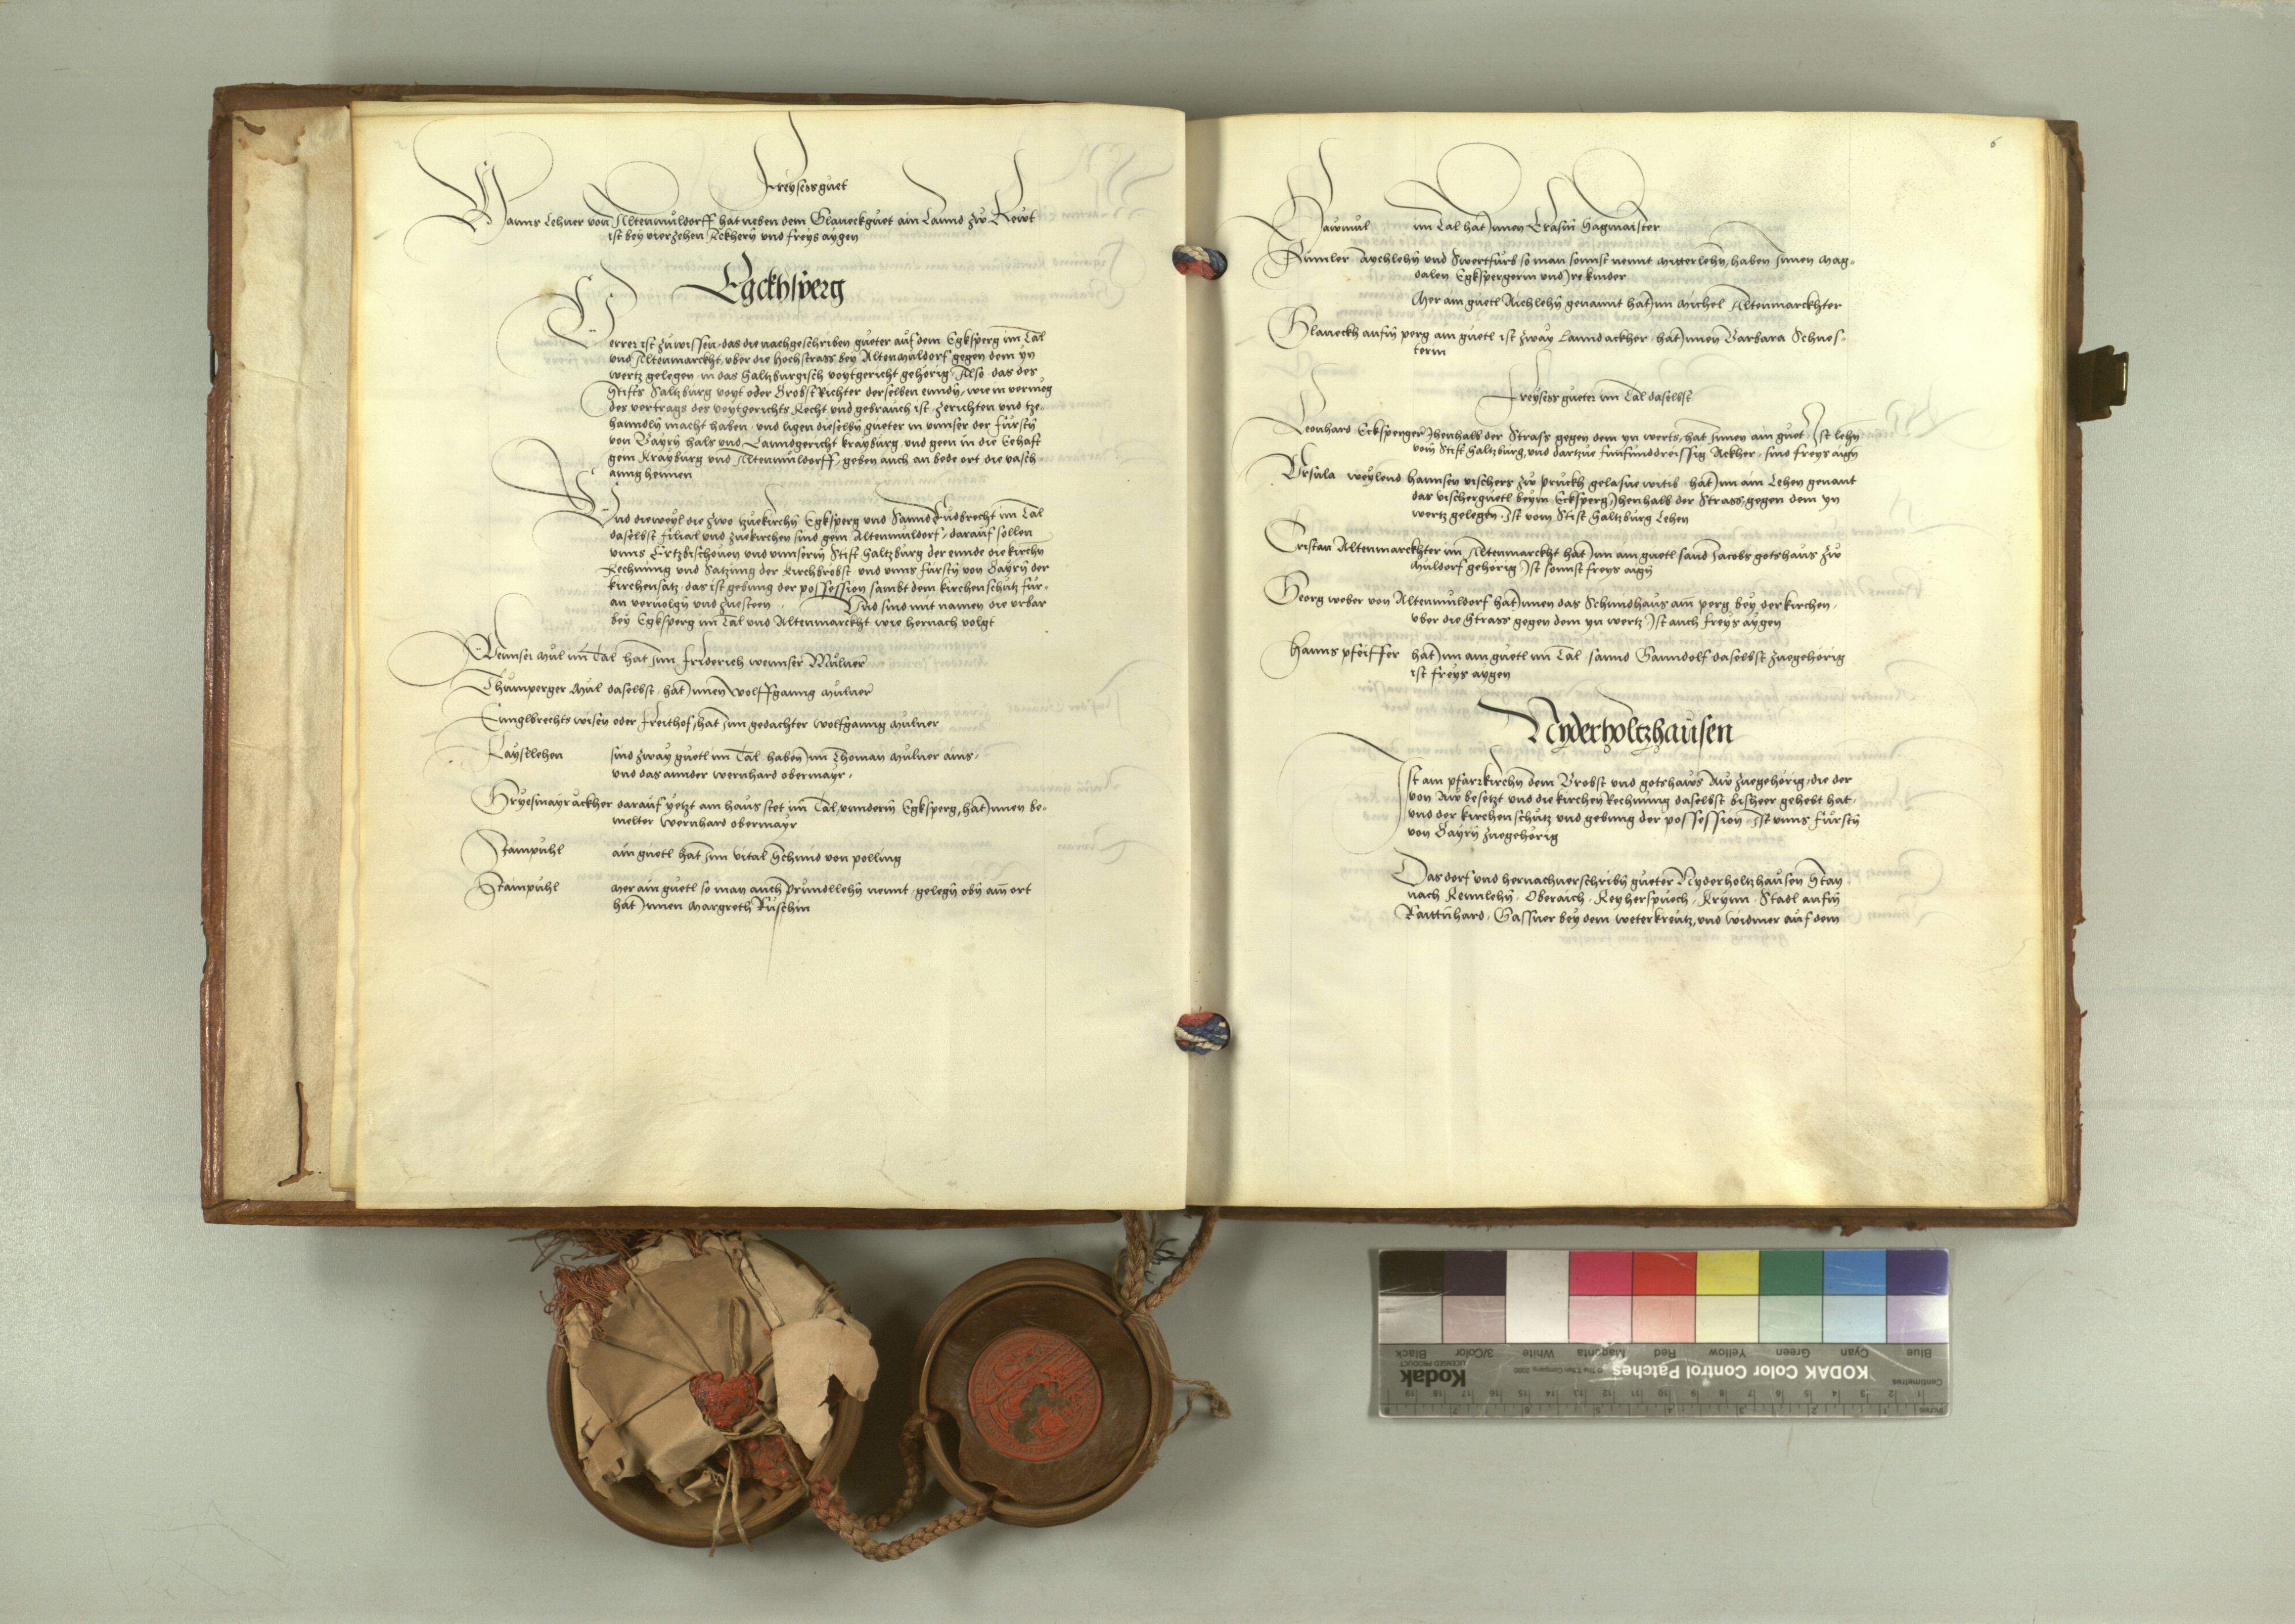 Freysess guet
Hanns Lehner von Altenmuldorff hat neben dem Glaneckguet ain Lannd zw Rewt
ist bey vierzehen Äckhern und freys aygen
Egckhsperg
Ferrer ist zuwissen, das die nachgeschriben gueter auf dem Egksperg im Tal
und Altenmarckht, uber die hochstrass bey Altenmuldorf gegen dem yn
wertz gelegen, in das Saltzburgisch voytgericht gehörig, Also das des
Stifts Saltzburg voyt oder Brobst Richter derselben ennden, wie in vermög
des vertrags des voytgerichts Recht und gebrauch ist, zerichten und tze-
hanndln macht haben, und ligen dieselbn gueter in unnser der fürstn
von Bayrn hals und Lanndgericht krayburg, und geen in die Eehaft
gein Krayburg und Altenmuldorff, geben auch an bede ort die vasch-
anng hennen
Und dieweyl die zwo zuekirchn Egksperg und Sannd Rudbrecht im Tal
daselbst filial und zuekirchen sind gein Altenmuldorf, darauf sollen
unns Ertzbischoven und unnserm Stift Saltzburg der ennde die kirchn
Rechnung und Satzung der kirchbrobst, und unns fürstn von Bayrn der
kirchensatz, das ist gebung der possession sambt dem kirchenschutz für-
an vervolgn und zuesteen. Und sind mit namen die urbar
bey Egksperg im Tal und Altenmarckht, wie hernach volgt
Wennser Mul im Tal hat Inn friderich wennser Mulner
Thumperger Mul daselbst, hat Innen Wolffganng Mulner
Ennglbrechts wisen oder Freithof, hat Inn gedachter wolfganng Mulner
Kaystlehen sind zway guetl im Tal, haben Inn Thoman Mulner ains,
und das annder wernhard obermayr,
Gryesmayr äckher darauf yetzt ain haus stet im Tal, underm Egksperg, hat Innen be-
melter Wernhard obermayr
Stampuhl ain guetl hat Inn vital Schmid von polling
Stampuhl Mer ain guetl so man auch Prundllehn nennt, gelegn obn am ort
hat Innen Margreth Ruschin
6
Pawmul im Tal hat Innen Erasm Hagmaister
Rumler Aychlehn und Swertfurb so man sonnst nennt Mitterlehn, haben Innen Mag-
dalen Egkspergerin und Ire kinder
Mer ain guetl Aichlehn genannt hat Inn Michel Altenmarckhter
Glaneckh aufm perg ain guetl ist zway Lannd äckher, hat Innen Barbara Schues-
terin
Freysess gueter im Tal daselbst
Leonhard Ecksperger Ihenhalb der Strass gegen dem yn werts, hat Innen ain guet, Ist lehn
vom Stift Saltzburg, und dartzue funfunddreissig Ackher, sind freys aign
Ursula weylend hannsen vischers zw Pruckh gelasne witib, hat Inn ain Lehen genant
das vischerguetl beym Ecksperg Ihenhalb der Strass, gegen dem yn
wertz gelegen, Ist vom Stift Saltzburg Lehen
Cristan Altenmarckhter im Altenmarckht hat Inn ain guetl sand Jacobs gotshaus zw
Muldorf gehörig Ist sonnst freys aign
Georg weber von Altenmuldorf hat Innen das Schmidhaus am perg bey der kirchen,
uber die Strass gegen dem yn wertz Ist auch freys aygen
Hanns pfeiffer hat Inn ain guetl im Tal, sannd Ganndolf daselbst zuegehörig
ist freys aygen
Nyderholtzhausen
Ist ain pfarrkirchn dem Brobst und gotshaus Aw zuegehörig, die der
von Aw besetzt und die kirchen Rechnung daselbst bisheer gehebt hat,
und der kirchenschutz und gebung der possession, Ist unns fürstn
von Bayrn zuegehörig
Das dorf und hernachverschribn gueter Nyderholtzhausen, Stay
nach Rennlehn, Oberaich, Reyherspuech, Krynn, Stadl aufm
Raittnhard, Gassner bey dem weterkreutz, und widmer auf dem
KODAK Color Control Patches
Kodak
LICENSED PRODUCT
Blue Cyan Green Yellow Red Magenta White 3/Color Black
Centimetres
Inches